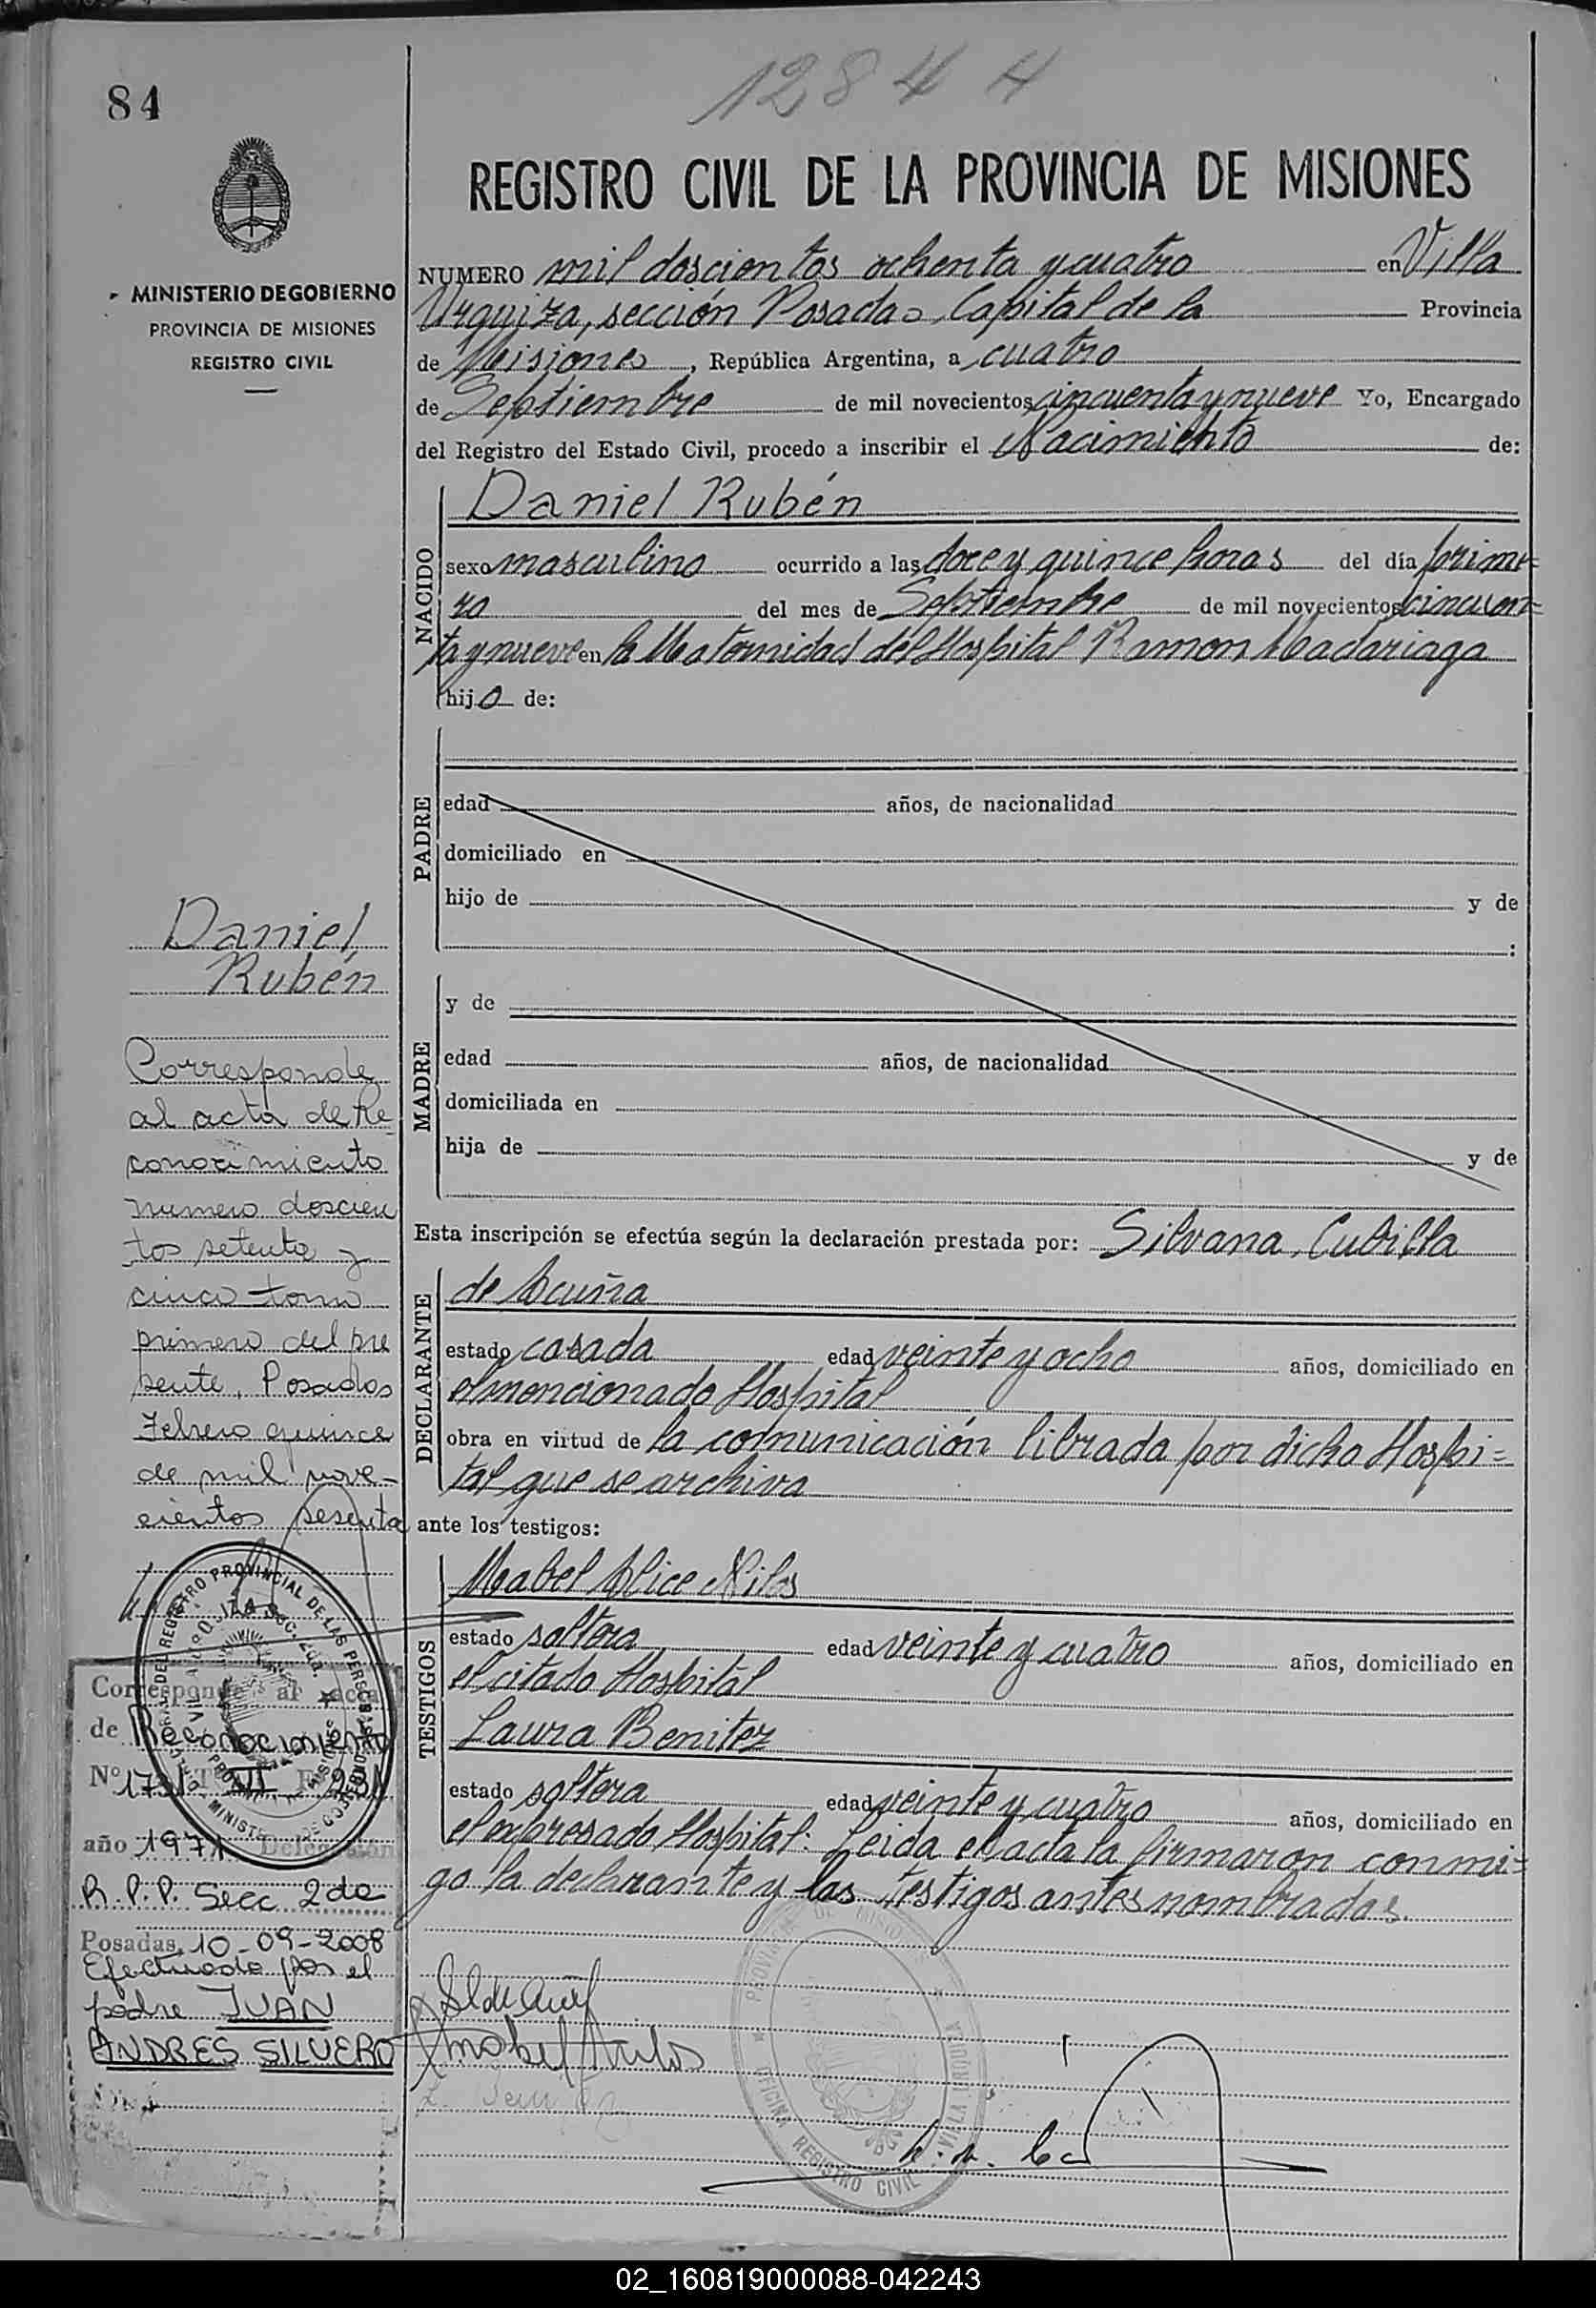 84
1284 H
REGISTRO CIVIL DE LA PROVINCIA DE MISIONES
MINISTERIO DE GOBIERNO
PROVINCIA DE MISIONES
REGISTRO CIVIL
NUMERO mil doscientos ochenta y cuatro en Villa
Urquiza, sección Posadas, Capital de la Provincia
de Misiones, República Argentina, a cuatro
de Septiembre de mil novecientos cincuenta y nueve Yo, Encargado
del Registro del Estado Civil, procedo a inscribir el Nacimiento de:
NACIDO
Daniel Rubén
sexo masculino ocurrido a las doce y quince horas del día prime=
ro del mes de Septiembre de mil novecientos cincuen=
ta y nueve en la Maternidad del Hospital Ramon Madariaga
hijo de:
PADRE
edad años, de nacionalidad
domiciliado en
hijo de y de
:
MADRE
y de
edad años, de nacionalidad
domiciliada en
hija de y de
Esta inscripción se efectúa según la declaración prestada por: Silvana Cubilla
DECLARANTE
de Acuña
estado casada edad veinte y ocho años, domiciliado en
el mencionado Hospital
obra en virtud de la comunicación librada por dicho Hospi=
tal que se archiva
ante los testigos:
TESTIGOS
Mabel Alice Nilos
estado soltera edad veinte y cuatro años, domiciliado en
el citado Hospital
Laura Benitez
estado soltera edad veinte y cuatro años, domiciliado en
el expresado Hospital: Leida el acta la firmaron conmi=
go la declarante y las testigos antes nombradas.
Daniel
Rubén
Corresponde
al acta de Re
conocimiento
numero doscien
tos setenta y
cinco tomo
primero del pre
sente, Posadas
Febrero quince
de mil nove-
cientos sesenta
REGISTRO PROVINCIAL DE LAS PERSONAS
Corresponde al acta
de Reconocimiento
Nº 1731 T VII F 231
año 1971 Delegación
R.P.P. Secc 2da
Posadas, 10-09-2008
Efectuado por el
padre JUAN
ANDRES SILVERO
PROVINCIA DE MISIONES
OFICINA REGISTRO CIVIL
VILLA URQUIZA
02_160819000088-042243